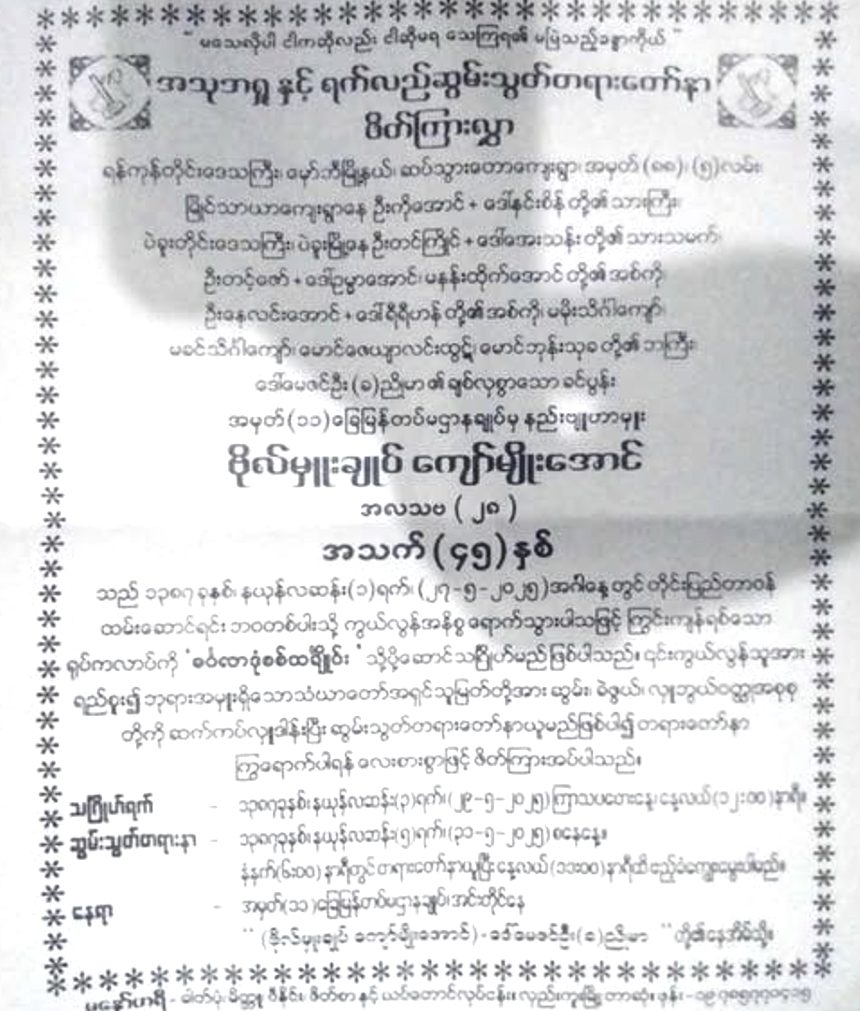 " မသေလိုပါ ငါကဆိုလည်း ငါဆိုမရ သေကြရ၏ မမြဲသည့်ခန္ဓာကိုယ် "
အသုဘရှု နှင့် ရက်လည်ဆွမ်းသွတ်တရားတော်နာ
ဖိတ်ကြားလွှာ
ရန်ကုန်တိုင်းဒေသကြီး၊ မှော်ဘီမြို့နယ်၊ ဆပ်သွားတောကျေးရွာ၊ အမှတ် (၈၈)၊ (၅)လမ်း၊
မြိုင်သာယာကျေးရွာနေ ဦးကိုအောင် + ဒေါ်နင်းစိန် တို့၏ သားကြီး၊
ပဲခူးတိုင်းဒေသကြီး၊ ပဲခူးမြို့နေ ဦးတင်ကြိုင် + ဒေါ်အေးသန်း တို့၏ သားသမက်၊
ဦးတင့်ဇော် + ဒေါ်ဥမ္မာအောင်၊ မနန်းထိုက်အောင် တို့၏ အစ်ကို၊
ဦးနေလင်းအောင် + ဒေါ်ရီရီဟန် တို့၏ အစ်ကို၊ မမိုးသိင်္ဂါကျော်၊
မခင်သိင်္ဂါကျော်၊ မောင်ဇေယျာလင်းထွဋ်၊ မောင်ဘုန်းသုခ တို့၏ ဘကြီး၊
ဒေါ်မေဇင်ဦး (ခ) ညိုမာ ၏ ချစ်လှစွာသော ခင်ပွန်း
အမှတ် (၁၁) ခြေမြန်တပ်မဌာနချုပ်မှ နည်းဗျူဟာမှူး
ဗိုလ်မှူးချုပ် ကျော်မျိုးအောင်
အလသဗ ( ၂၈ )
အသက် (၄၅) နှစ်
သည် ၁၃၈၇ ခုနှစ်၊ နယုန်လဆန်း (၁)ရက်၊ (၂၇-၅-၂၀၂၅) အင်္ဂါနေ့ တွင် တိုင်းပြည်တာဝန်
ထမ်းဆောင်ရင်း ဘဝတစ်ပါးသို့ ကွယ်လွန်အနိစ္စ ရောက်သွားပါသဖြင့် ကြွင်းကျန်ရစ်သော
ရုပ်ကလာပ်ကို ' စစ်သင်္ချိုင်း ' သို့ပို့ဆောင်သင်္ဂြိုဟ်မည်ဖြစ်ပါသည်။ ၎င်းကွယ်လွန်သူအား
ရည်စူး၍ ဘုရားအမှူးရှိသောသံဃာတော်အရှင်သူမြတ်တို့အား ဆွမ်း၊ ခဲဖွယ်၊ လှူဘွယ်ဝတ္ထုအစုစု
တို့ကို ဆက်ကပ်လှူဒါန်းပြီး ဆွမ်းသွတ်တရားတော်နာယူမည်ဖြစ်ပါ၍ တရားတော်နာ
ကြွရောက်ပါရန် လေးစားစွာဖြင့် ဖိတ်ကြားအပ်ပါသည်။
သင်္ဂြိုဟ်ရက် - ၁၃၈၇ခုနှစ်၊ နယုန်လဆန်း(၃)ရက်၊ (၂၉-၅-၂၀၂၅) ကြာသပတေးနေ့၊ နေ့လယ် (၁၂:၀၀) နာရီ။
ဆွမ်းသွတ်တရားနာ - ၁၃၈၇ခုနှစ်၊ နယုန်လဆန်း(၅)ရက်၊ (၃၁-၅-၂၀၂၅) စနေနေ့။
နံနက် (၆:၀၀) နာရီတွင် တရားတော်နာယူပြီး နေ့လယ် (၁၁:၀၀) နာရီထိ ဧည့်ခံကျွေးမွေးပါမည်။
နေရာ - အမှတ် (၁၁) ခြေမြန်တပ်မဌာနချုပ်၊ အင်းတိုင်နေ
" (ဗိုလ်မှူးချုပ် ကျော်မျိုးအောင်) - ဒေါ်မေဇင်ဦး (ခ) ညိုမာ " တို့၏နေအိမ်သို့။
မနော်ဟရီ - ဓါတ်ပုံ၊ မိတ္တူ၊ ဗီနိုင်း၊ ဖိတ်စာ နှင့် ယပ်တောင်လုပ်ငန်း။ လှည်းကူးမြို့